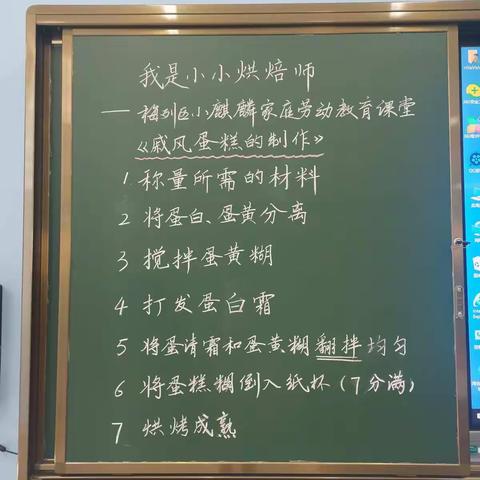 我是小小烘焙师
——梅列区小麒麟家庭劳动教育课堂
《戚风蛋糕的制作》
1 称量所需的材料
2 将蛋白、蛋黄分离
3 搅拌蛋黄糊
4 打发蛋白霜
5 将蛋清霜和蛋黄糊翻拌均匀
6 将蛋糕糊倒入纸杯(7分满)
7 烘烤成熟